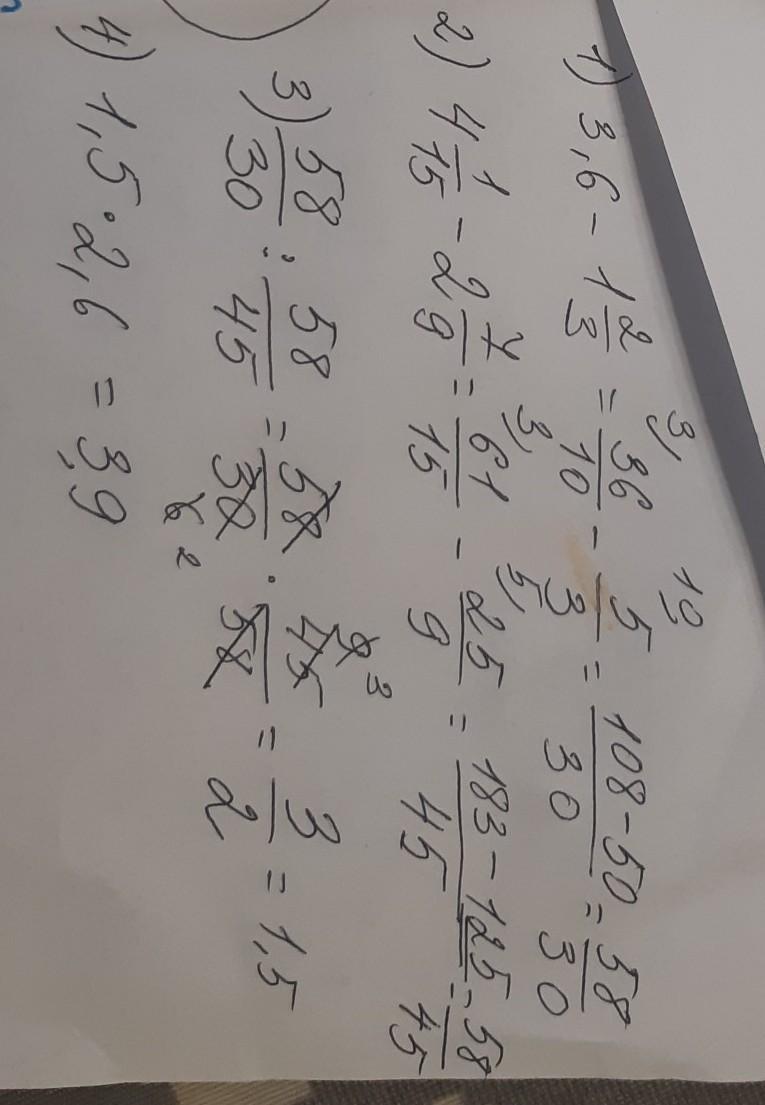 1) 3,6 - 1 2/3 = 36/10 3) - 5/3 10) = 108-50/30 = 58/30
2) 4 1/15 - 2 7/9 = 61/15 3) - 25/9 5) = 183-125/45 = 58/45
3) 58/30 : 58/45 = 58/30 6 2 · 45/58 9 3 = 3/2 = 1,5
4) 1,5 · 2,6 = 3,9